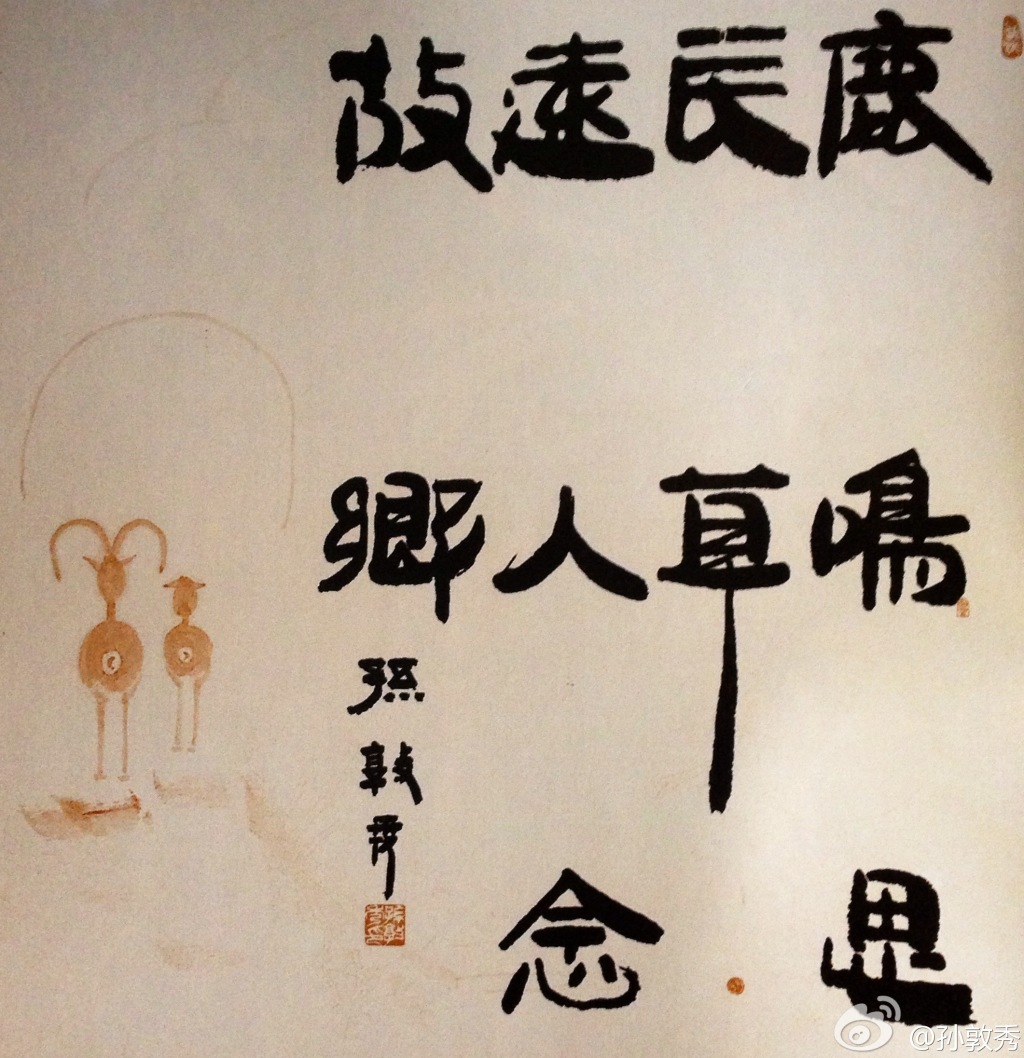 鹿鳴思
長草
遠人念
故鄉
孫敦秀
@孙敦秀